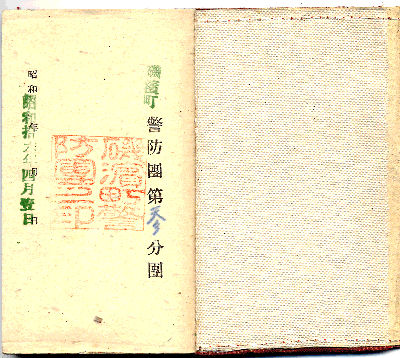 磯濱町警防團第分團
磯濱町警
防團之印
昭和年月日
昭和拾六年四月壹日